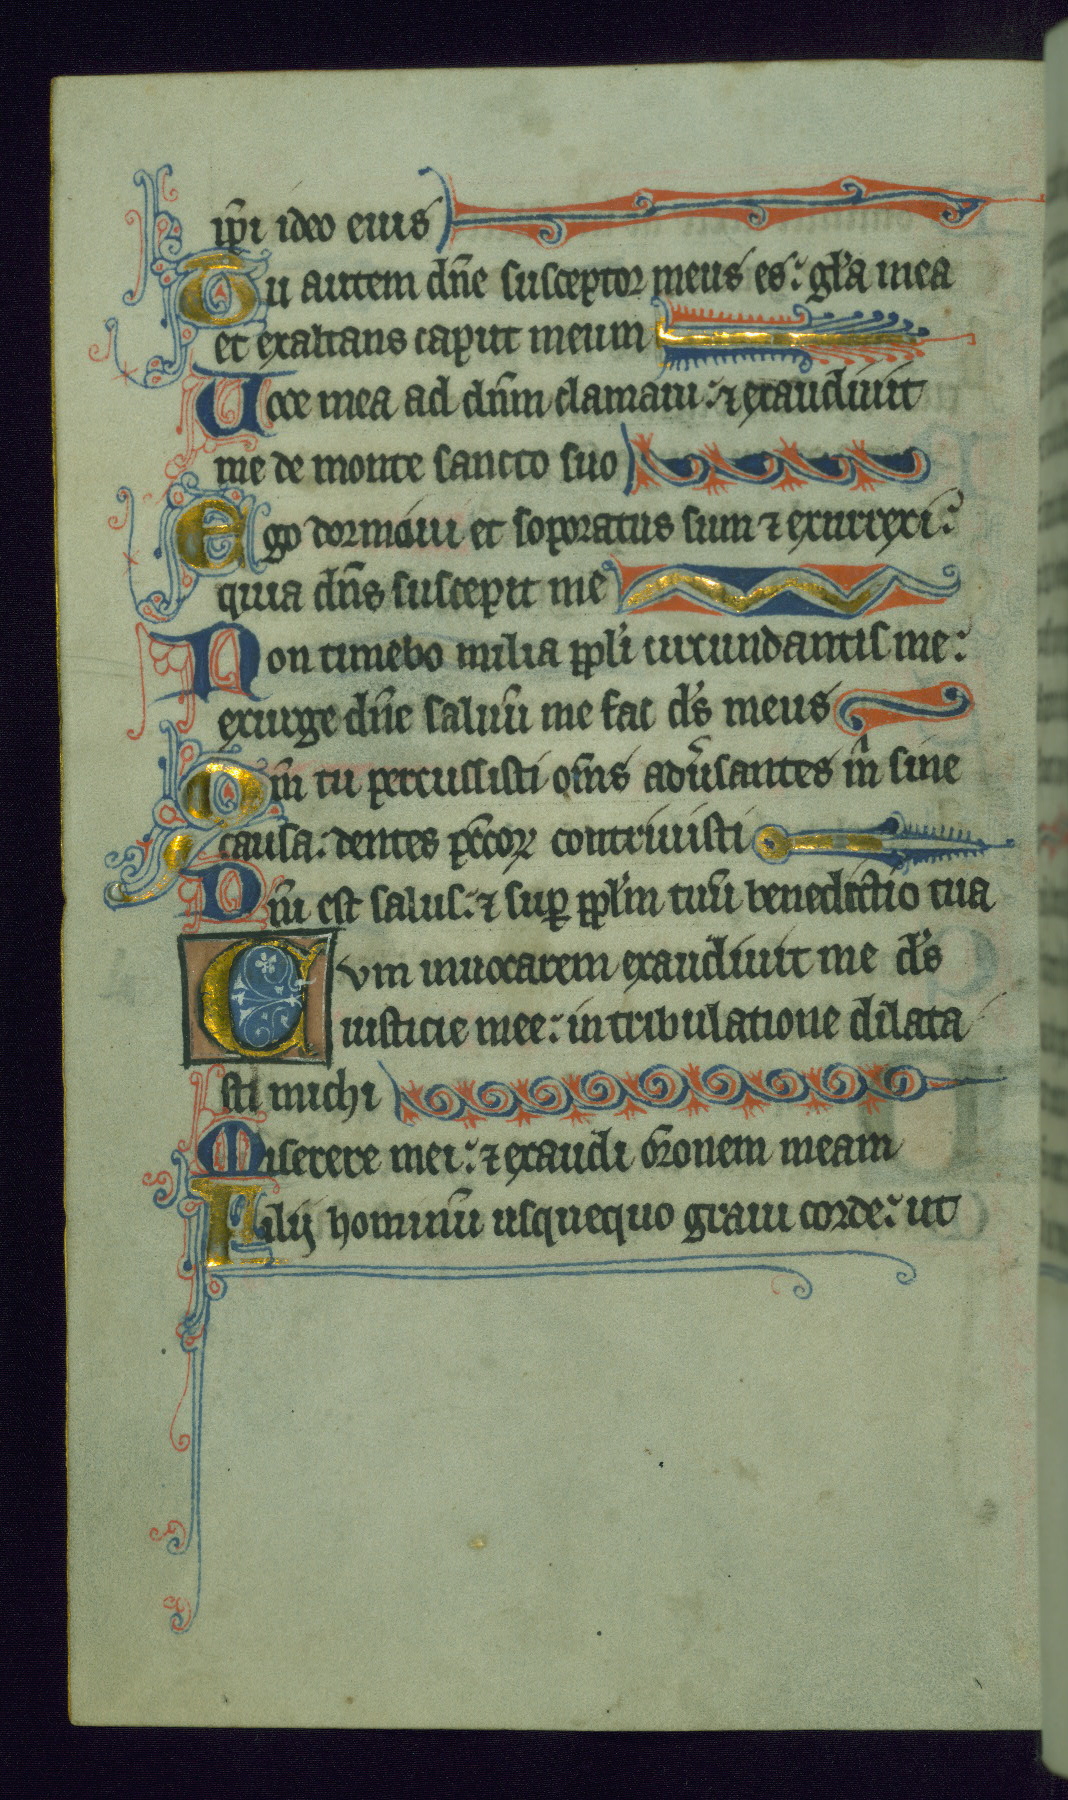 ip̄i ideo eius
Tu autem dn̄e susceptor meus es: gl̄a mea
et exaltans caput meum
Uoce mea ad dn̄m clamaui: ⁊ exaudiuit
me de monte sancto suo
Ego dormiui et soporatus sum ⁊ exurrexi:
quia dn̄s suscepit me
Non timebo milia ppl̄i circundantis me:
exurge dn̄e saluū me fac ds̄ meus
Qm̄ tu percussisti om̄s aduʼsantes m̄ sine
causa: dentes pc̄coꝝ contriuisti
Dn̄i est salus: ⁊ suꝑ ppl̄m tuū benedictio tua
Cvm inuocarem exaudiuit me ds̄
iusticie mee: in tribulatione dilata
sti michi
Miserere mei: ⁊ exaudi or̄onem meam
Filij hominū usquequo graui corde: ut